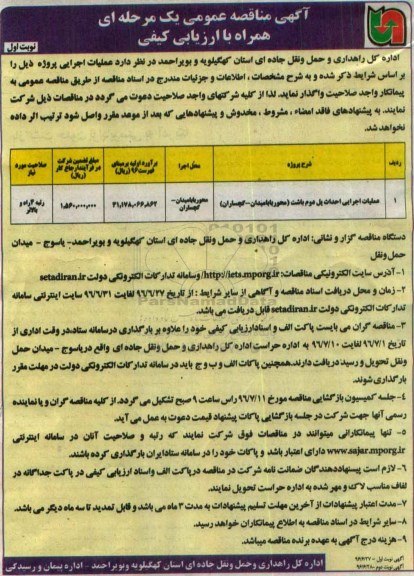 آگهی مناقصه عمومی یک مرحله ای
همراه با ارزیابی کیفی
نوبت اول
اداره کل راهداری و حمل ونقل جاده ای استان کهگیلویه و بویراحمد در نظر دارد عملیات اجرایی پروژه ذیل را
بر اساس شرایط ذکر شده و به شرح مشخصات ، اطلاعات و جزئیات مندرج در اسناد مناقصه از طریق مناقصه عمومی به
پیمانکار واجد صلاحیت واگذار نماید. لذا از کلیه شرکتهای واجد صلاحیت دعوت می گردد در مناقصات ذیل شرکت
نمایند. به پیشنهادهای فاقد امضاء ، مشروط ، مخدوش و پیشنهادهایی که بعد از موعد مقرر واصل شود ترتیب اثر داده
نخواهد شد.
ردیف شرح پروژه محل اجرا برآورد اولیه برمبنای فهرست ۹۶ (ریال) مبلغ تضمین شرکت در فرآیند ارجاع کار (ریال) صلاحیت مورد نیاز
۱ عملیات اجرایی احداث پل دوم باشت (محور بابامیدان-گچساران) محور بابامیدان-گچساران ۳۱,۱۷۸,۰۶۶,۸۶۲ ۱,۵۶۰,۰۰۰,۰۰۰ رتبه ۴ راه و بالاتر
دستگاه مناقصه گزار و نشانی: اداره کل راهداری و حمل ونقل جاده ای استان کهگیلویه و بویراحمد- یاسوج - میدان
حمل ونقل
۱-آدرس سایت الکترونیکی مناقصات: http://iets.mporg.ir/ وسامانه تدارکات الکترونیکی دولت setadiran.ir
۲-زمان و محل دریافت اسناد مناقصه و آگاهی از سایر شرایط : از تاریخ ۹۶/۶/۲۷ لغایت ۹۶/۶/۳۱ سایت اینترنتی سامانه
تدارکات الکترونیکی دولت setadiran.ir قابل دریافت می باشد.
۳-مناقصه گران می بایست پاکت الف و اسنادارزیابی کیفی خود را علاوه بر بارگذاری درسامانه ستاد،در وقت اداری از
تاریخ ۹۶/۷/۱ لغایت ۹۶/۷/۱۰ به اداره حراست اداره کل راهداری و حمل ونقل جاده ای واقع دریاسوج - میدان حمل
ونقل تحویل و رسید دریافت دارند.همچنین پاکات الف و ب و ج باید در سامانه تدارکات الکترونیکی دولت در مهلت مقرر
بارگذاری شوند.
۴-جلسه کمیسیون بازگشایی مناقصه مورخ ۹۶/۷/۱۱ راس ساعت ۹ صبح تشکیل می گردد. از کلیه مناقصه گران و یا نماینده
رسمی آنها جهت شرکت در جلسه بازگشایی پاکات پیشنهاد قیمت دعوت به عمل می آید.
۵- تنها پیمانکارانی میتوانند در مناقصات فوق شرکت نمایند که رتبه و صلاحیت آنان در سامانه اینترنتی
www.sajar.mporg.ir دارای اعتبار باشد و پاکات خود را در سامانه ستادایران بارگذاری کرده باشند.
۶- لازم است پیشنهاددهندگان ضمانت نامه شرکت در مناقصه درپاکت الف واسناد ارزیابی کیفی در پاکت جداگانه در
لفاف مناسب لاک و مهر شده به اداره حراست تحویل نمایند.
۷-مدت اعتبار پیشنهادات از آخرین مهلت تسلیم پیشنهادات به مدت ۳ ماه می باشد و قابل تمدید تا سه ماه دیگر می باشد.
۸-سایر شرایط در اسناد مناقصه به اطلاع پیمانکاران خواهد رسید.
۹-هزینه درج آگهی به عهده برنده مناقصه میباشد.
آگهی نوبت اول - ۹۶/۶/۲۷
آگهی نوبت دوم - ۹۶/۶/۲۸
اداره کل راهداری و حمل ونقل جاده ای استان کهگیلویه وبویراحمد - اداره پیمان و رسیدگی